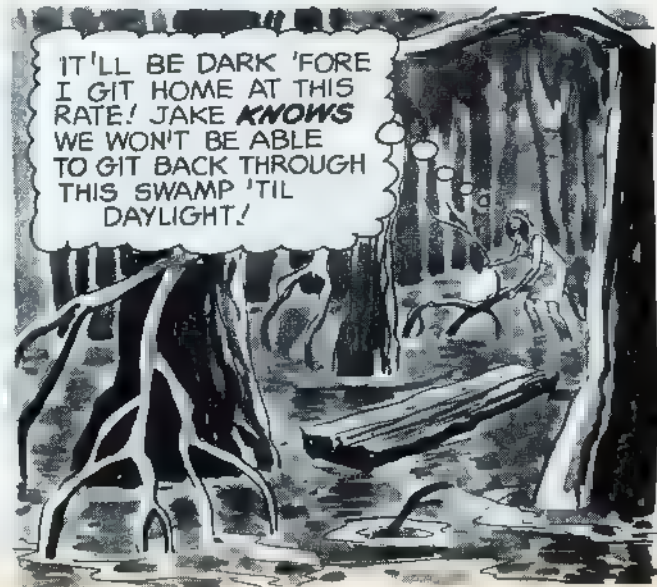 IT'LL BE DARK 'FORE
I GIT HOME AT THIS
RATE! JAKE KNOWS
WE WON'T BE ABLE
TO GIT BACK THROUGH
THIS SWAMP 'TIL
DAYLIGHT!